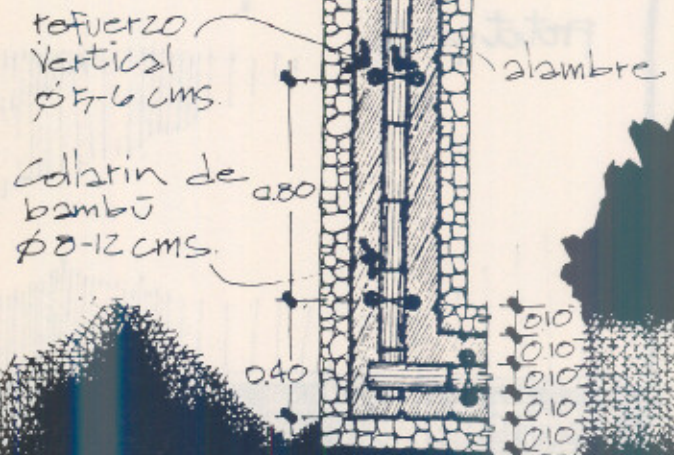 refuerzo
vertical
Ø 5-6 cms.
alambre
Collarin de
bambū
Ø 8-12 cms.
0.80
0.40
0.10
0.10
0.10
0.10
0.10